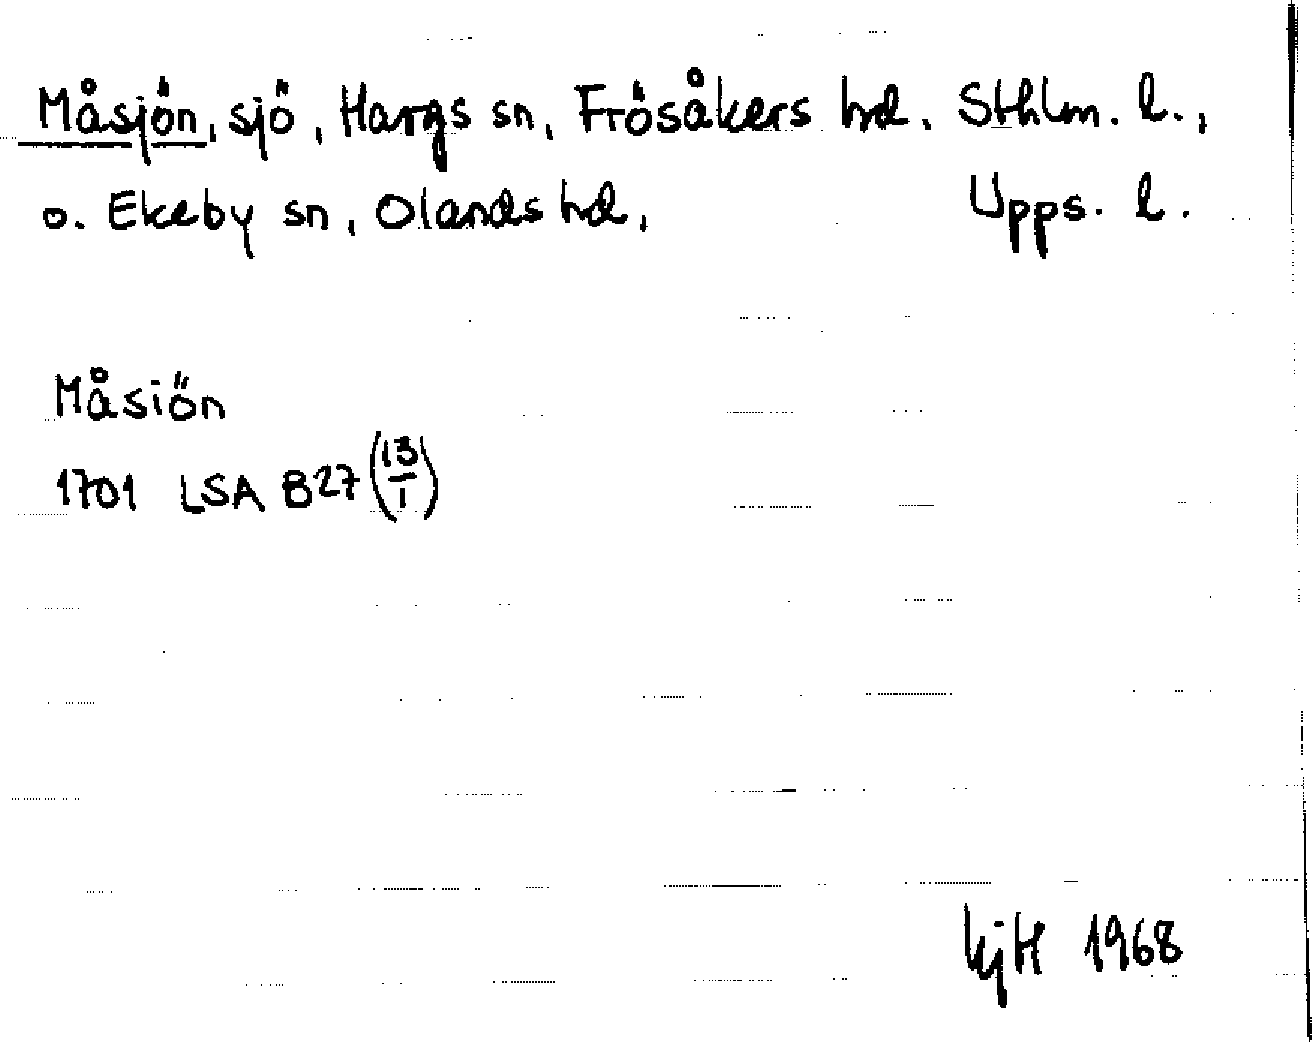 Måsjön, sjö, Hargs sn, Frösåkers hd. Sthlm. l.,
o. Ekeby sn, Olands hd, Upps. l.
Måsiön
1701 LSA B27 (13/1)
KjH 1968